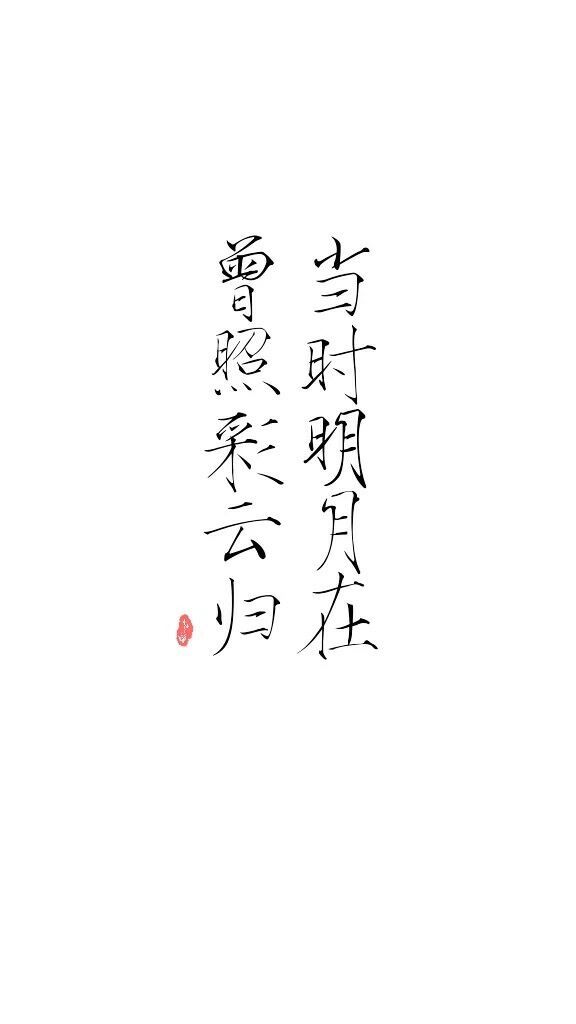 当时明月在
曾照彩云归